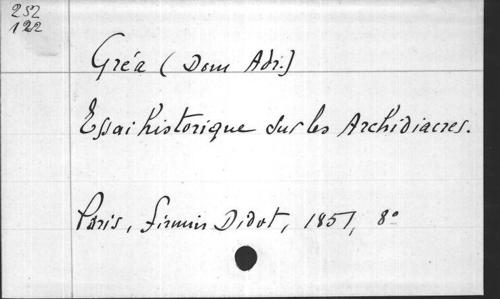 252
122
Gréa (Dom Adr.)
Essai historique sur les Archidiacres.
Paris, Firmin Didot, 1851, 8°